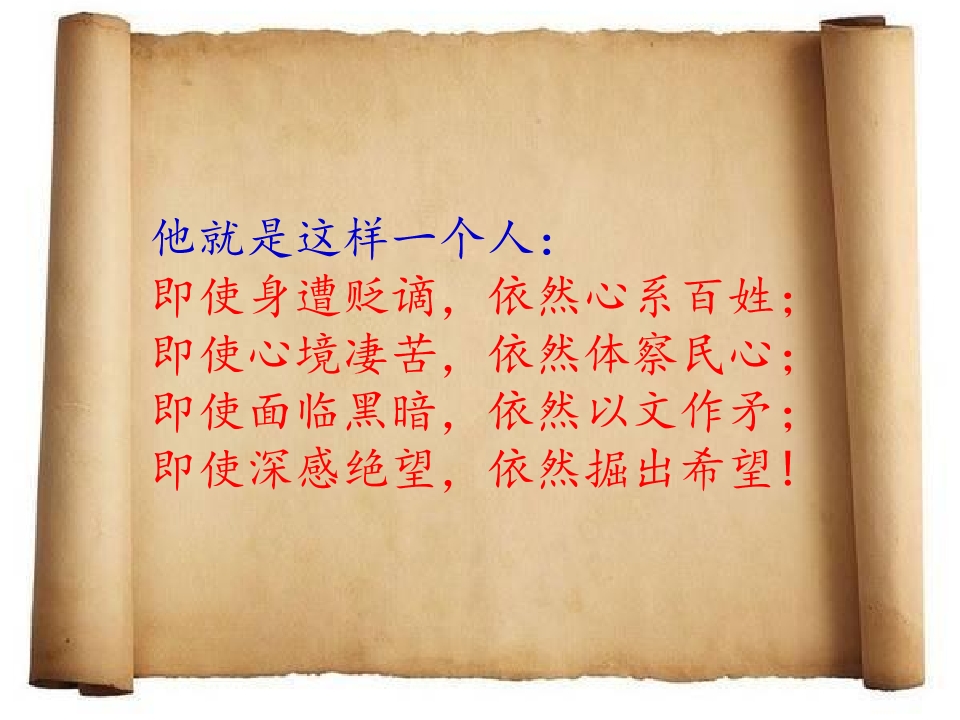 他就是这样一个人：
即使身遭贬谪，依然心系百姓；
即使心境凄苦，依然体察民心；
即使面临黑暗，依然以文作矛；
即使深感绝望，依然掘出希望！